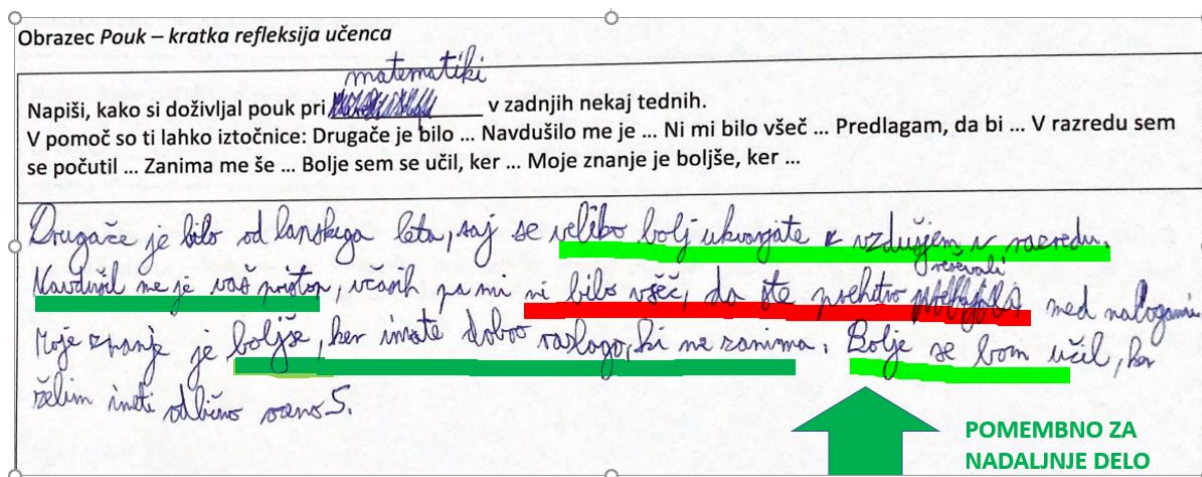 Obrazec Pouk – kratka refleksija učenca
matematiki
Napiši, kako si doživljal pouk pri v zadnjih nekaj tednih.
V pomoč so ti lahko iztočnice: Drugače je bilo ... Navdušilo me je ... Ni mi bilo všeč ... Predlagam, da bi ... V razredu sem
se počutil ... Zanima me še ... Bolje sem se učil, ker ... Moje znanje je boljše, ker ...
Drugače je bilo od lanskega leta, saj se veliko bolj ukvarjate z vzdušjem v razredu.
reševali
Navdušil me je vaš pristop, včasih pa mi ni bilo všeč, da ste prehitro med nalogami.
Moje znanje je boljše, ker imate dobro razlago, ki me zanima. Bolje se bom učil, ker
želim imeti odlično oceno 5.
POMEMBNO ZA
NADALJNJE DELO